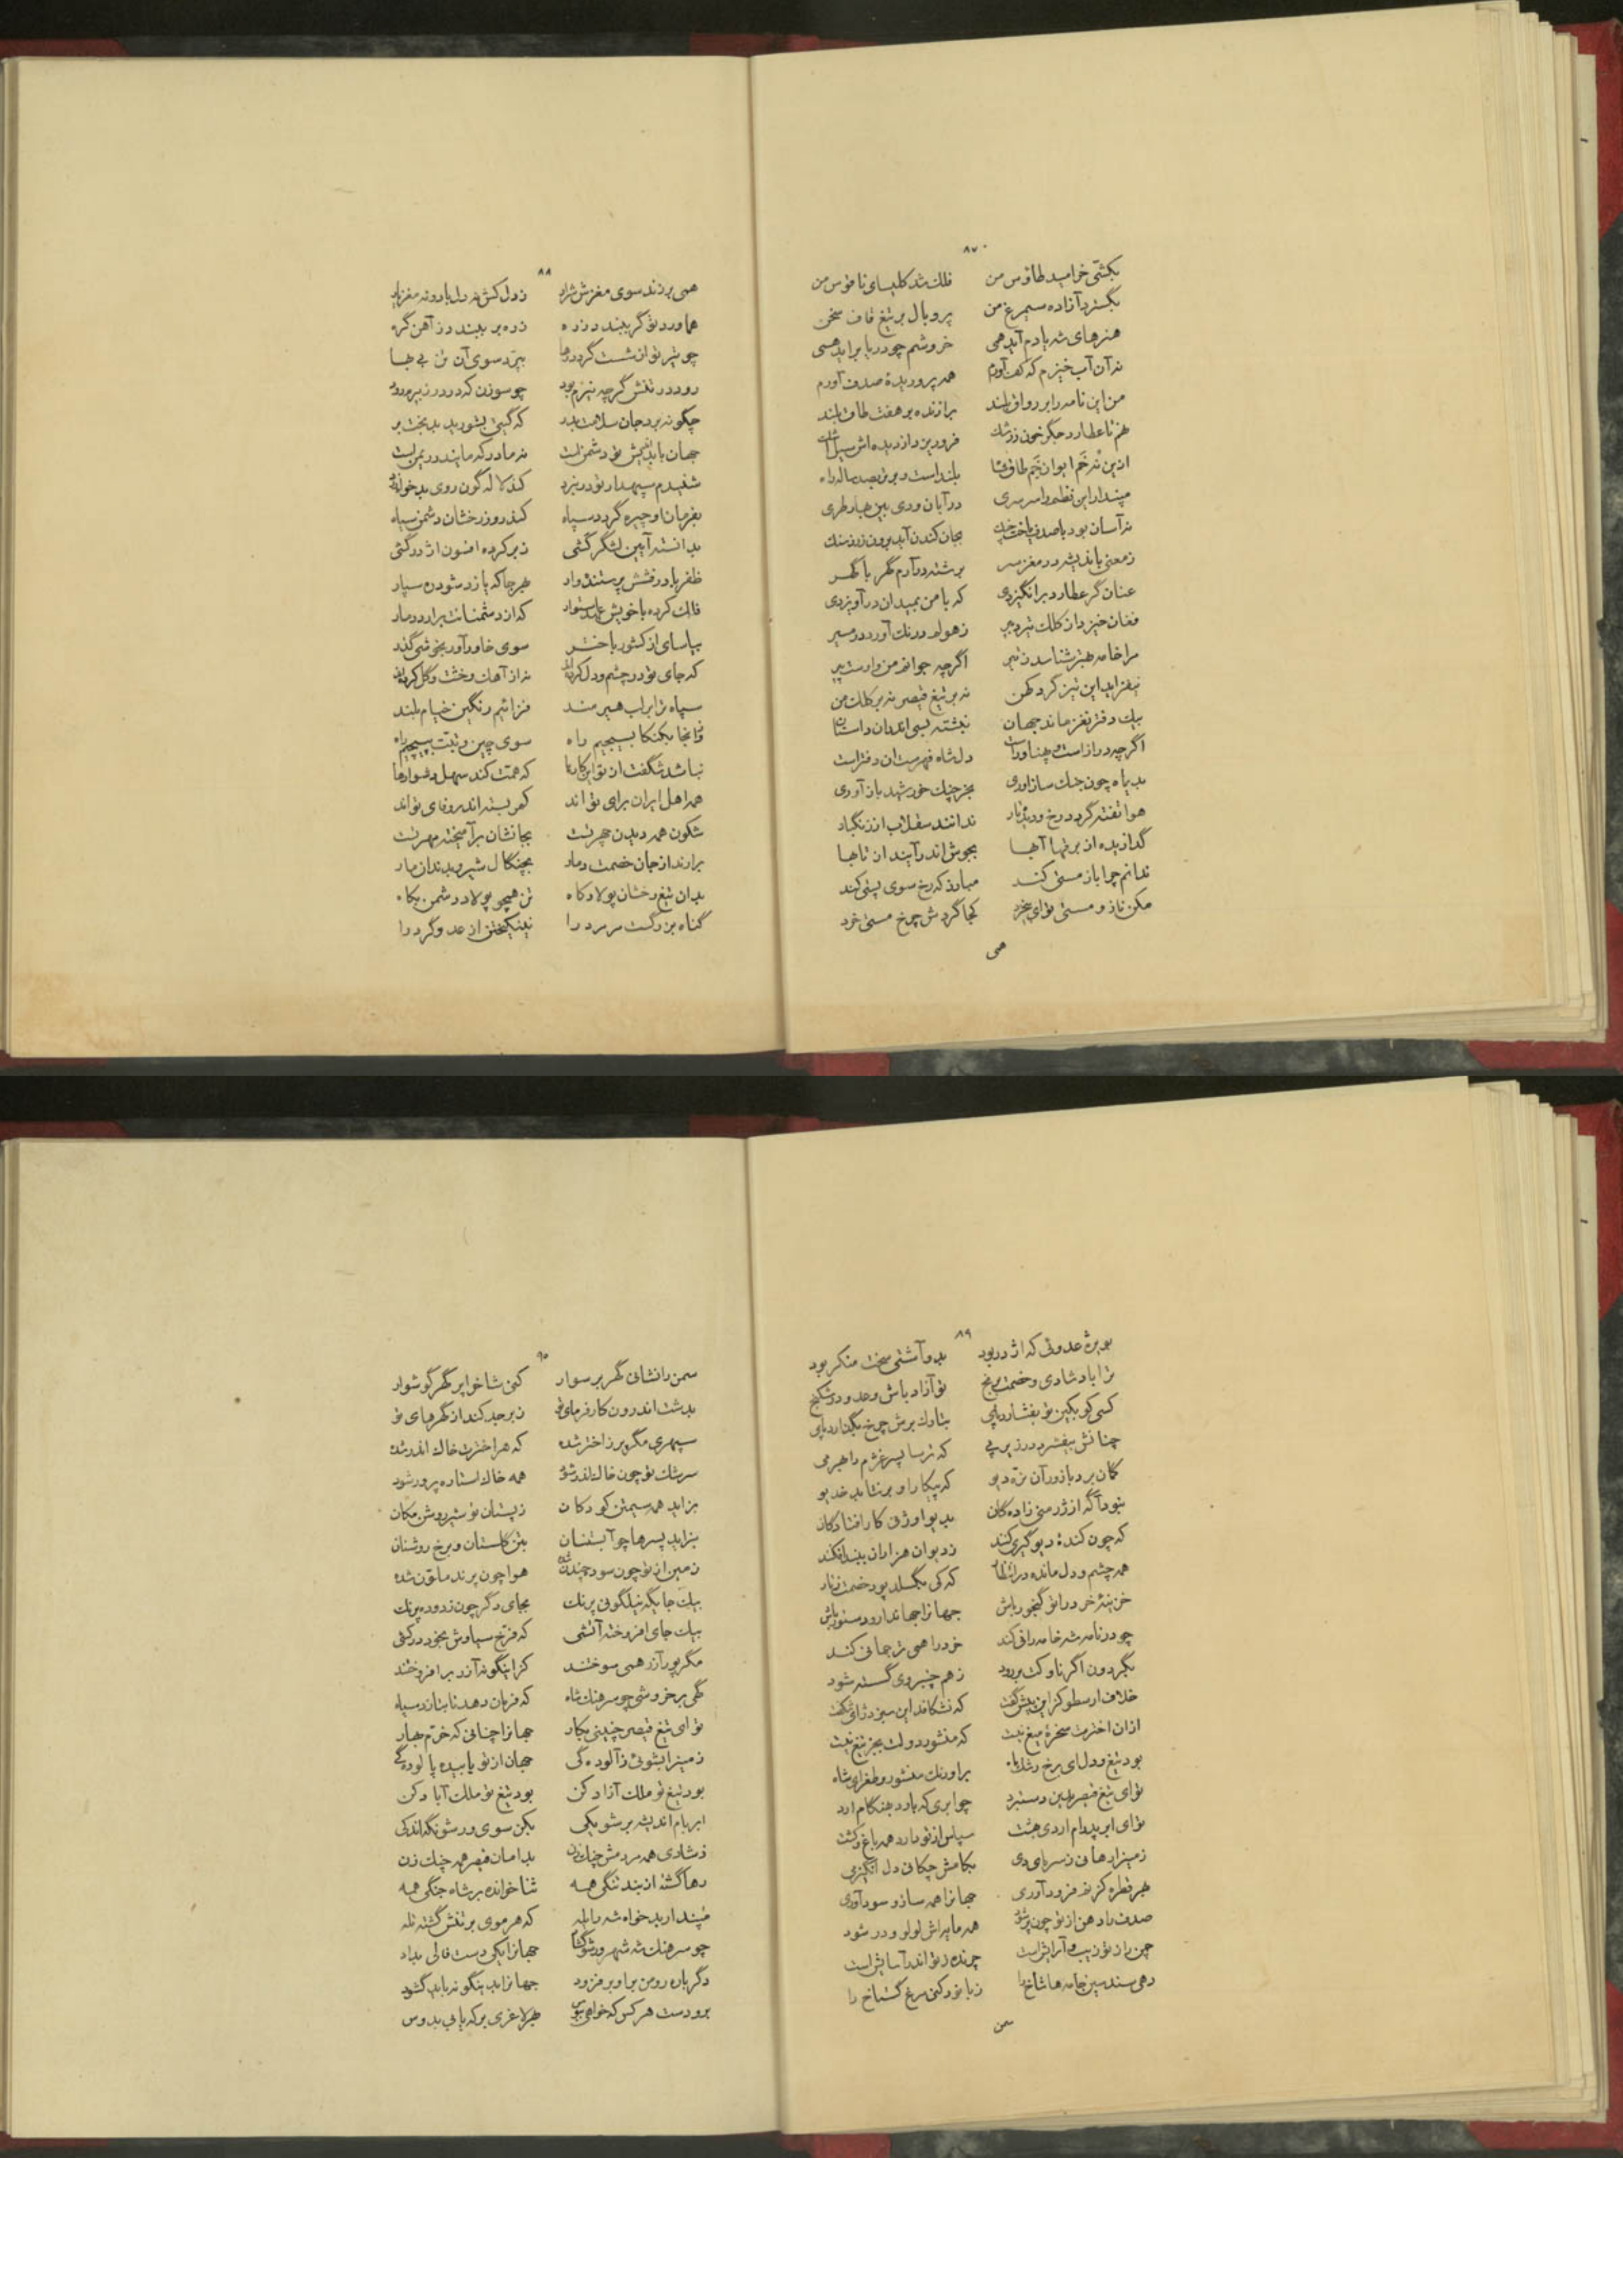 ۸۷
بکشتی خرامید طاوس من فلک شد کلیسای ناقوس من
بگسترد آزاده سیمرغ من پر و بال بر تیغ قاف سخن
هنرهای شه یادم آید همی خروشم چو دریا برآید همی
نه آن آب خیزم که کف آورم همه پروریدهٔ صدف آورم
من این نامه را بر رواق بلند برازنده بر هفت طاق بلند
هم تا عطارد جگر خون ز رشک فرو ریزد از دیده اش سیل اشک
ازین نه خم ایوان خم طاق تا بلند است و برتر بصد ساله راه
مپندار این نظم را سرسری در آبان و دی بین بهار طری
نه آسان بود با صدف باخت چنگ بجان کندن آید برون زر ز سنگ
ز معنی باندیشه در مغز سر برشته درآرم گهر با گهر
عنان گر عطارد برانگیزدی که با من بمیدان درآویزدی
فغان خیزد از کلک تیر دبیر ز هولم درنگ آورد در مسیر
مرا خامه هنر شناسد ز تیر اگرچه جوانم من و اوست پیر
نیفزاید این تیز گرد کهن نه بر تیغ قیصر نه بر کلک من
بیک دفتر نغز ماند جهان نبشته بسی اندر آن داستان
اگرچه دراز است و پهناور است دل شاه فهرست آن دفتر است
بدیماه چون جنگ ساز آوری بخرچنگ خورشید باز آوری
هوا تفته گردد رخ و دی بهار ندانند سقلاب از زنگبار
گدازیده از برفها آبها بجوش اندر آیند از تابها
ندانم چرا باز مستی کند مبادا که رخ سوی پستی کند
مکن ناز و مستی تو ای بیخرد کجا گردش چرخ مستی خرد
همی
۸۸
همی بر زند سوی مغزش شرار ز دل کش نه دل باد و نه مغز یار
هماورد تو گر ببندد زره زره بر ببندد ز آهن گره
چو تیر تو از شست گردد رها بپرد سوی آن تن بی بها
رود در تنش گرچه نیزم بود چو سوزن که در درز بیرم رود
چگونه برد جان سلامت بدر که گیتی بشورید بدبخت بر
جهان با بداندیش تو دشمن است نه مادر که مایندر ریمن است
شنیدم سپهدار تو در نبرد کند لاله گون روی بدخواه زرد
بفرمان او چیره گردد سپاه کند روز رخشان دشمن سیاه
بدانسته آیین لشگر کشی زبر کرده افسون اژدر کشی
ظفر با درفشش پرستنده وار بهر جا که یازد شود ره سپار
فلک کرده با خویش عهد استوار که از دشمنانت برآرد دمار
بیاسای از کشور باختر سوی خاور آور بخوشی گذر
که جای تو در چشم و دل کرده اند نه از آهک و خشت و گل کرده اند
سپاه ترا بر آب هیرمند فرازیم رنگین خیام بلند
و زانجا بکنکا بسیجیم راه سوی چین و تبت بپیچیم راه
نباشد شگفت از تو این کارها که همت کند سهل دشوارها
همه اهل ایران برای تواند کمر بسته اندر وفای تواند
شکون همه دیدن چهر تست بجانشان برآمیخته مهر تست
برآرند از جان خصمت دمار بچنگال شیر و بدندان مار
بدان تیغ رخشان پولاد کاه تن همچو پولاد دشمن بکاه
گناه بزرگست مر مرد را نینگیختن از عدو گرد را
۸۹
بویژه عدوئی که اژدر بود بدو آشتی سخت منکر بود
ترا باد شادی و خصمت برنج تو آزاد باش و عدو در شکنج
کسی کو بکین تو بفشارد پای بتارک برش چرخ بگذارد پای
چنانش بیفشرد در زیر پی که ترسا پسر غژم را بهر می
گمان برد بازور آن نره دیو که پیکار او بر نتابد خدیو
نبود آگه از زرمنی زادگان بدیو اوژنی کار افتادگان
که چون کندهٔ دیو گیری کند ز دیوان هزاران ببند افکند
همه چشم و دل مانده در انتظار که کی بگسلد پود خصمت ز تار
خزینهٔ خرد را تو گنجور باش جهانرا جهاندار و دستور باش
چو در نامه شه خامه رانی کند خرد را همی ترجمانی کند
بگردون اگر ناوکت بر رود ز هم چنبر وی گسسته شود
خلاف ارسطو کز این پیش گفت که نشکافد این سبز دژ ای شگفت
ازان اخترت سخرهٔ میغ نیست که منشور دولت بجز تیغ نیست
بود تیغ و دل ای برخ رشک ماه بر اورنگ منشور و طغرای شاه
تو ای تیغ قیصر بدین دستبرد چو ابری که بارد بهنگام ارد
تو ای ابر پدرام اردی بهشت سپاس از تو دارد همه باغ و کشت
زمین را رهانی ز سرمای دی بکامش چکانی دل انگیز می
بهر قطره کز بر فرود آوری جهانرا همه ساز و سود آوری
صدف را دهن از تو چون پر شود همه مایه اش لولو و در شود
چمن را ز تو زیب و آرایش است چرنده ز تو اندر آسایش است
دهی سندسین جامه ها شاخ را زبان نو کنی مرغ گستاخ را
سمن
۹۰
سمن را نشانی گهر بر سوار کنی شاخ را پر گهر گوشوار
بدشت اندرون کارفرمای تو زبرجد کند از گهرهای تو
سپهری مگر پر ز اختر شده که هر اخترت خاک اندر شده
سرشک تو چون خاک اندر شود همه خاک استاره پرور شود
بزاید همه سیمتن کودکان ز پستان تو شیر روشن مکان
بزاید پسرها چو آبستنان بتن گلستان و برخ روشنان
زمین از تو چون سود چندن شده هوا چون پرند ملون شده
بیک جایگه نیلگونی پرنگ بجای دگر چون زدوده پرنگ
بیک جای افروخته آتشی که فرخ سیاوش بخود درکشی
مگر پور آزر همی سوختند کز اینگونه آذر برافروختند
گهی برخروشی چو سرهنگ شاه که فرمان دهد تا بتازد سپاه
تو ای تیغ قیصر چنینی بکار جهانرا چنانی که خرم بهار
زمین را بشوئی ز آلودگی جهان از تو یابنده پالودگی
بود تیغ تو ملک آزاد کن بود تیغ تو ملک آباد کن
ابر بام اندیشه بر شو یکی بکن سوی ورشو نگه اندکی
ز شادی همه مردمش چنگ زن بدامان قیصر همه چنگ زن
رها گشته از بند تنگی همه ثنا خوانده بر شاه جنگی همه
مپندار بدخواه شه را یله که هر موی بر تنش گشته تله
چو سرهنگ شه شهر ورشو گشاد جهانرا یکی دست فالی بداد
دگر باره رومن براوبر فزود جهانرا بدینگونه باید گشود
برو دست هر کس که خواهی ببوس بهر لاغری بر که یابی بدوس